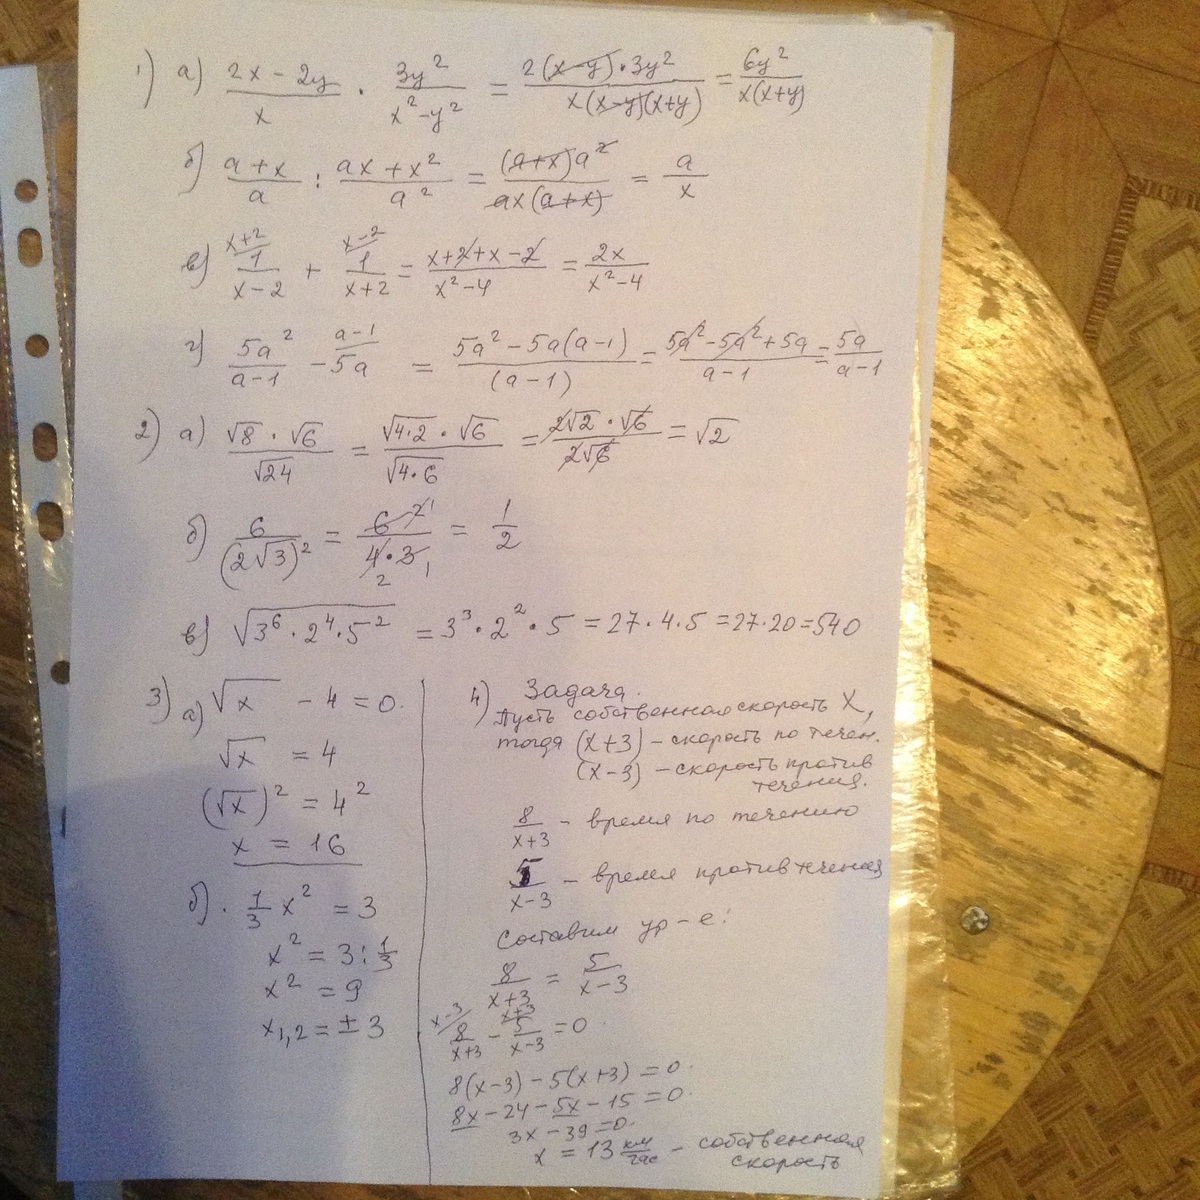 1) а) (2x − 2y)/x · 3y²/(x² − y²) = 2(x−y)·3y²/x(x−y)(x+y) = 6y²/x(x+y)
б) (a+x)/a : (ax + x²)/a² = (a+x)a²/ax(a+x) = a/x
в) x+2/ 1/(x−2) + x−2/ 1/(x+2) = (x+2+x−2)/(x²−4) = 2x/(x²−4)
г) 5a²/(a−1) − a−1/ 5a = (5a² − 5a(a−1))/(a−1) = (5a² − 5a² + 5a)/(a−1) = 5a/(a−1)
2) а) √8 · √6/√24 = √4·2 · √6/√4·6 = 2√2 · √6/2√6 = √2
б) 6/(2√3)² = 6 2 1/4·3 2 1 = 1/2
в) √3⁶ · 2⁴ · 5² = 3³ · 2² · 5 = 27 · 4 · 5 = 27·20 = 540
3) а) √x − 4 = 0.
√x = 4
(√x)² = 4²
x = 16
б). 1/3 x² = 3
x² = 3 : 1/3
x² = 9
x1,2 = ± 3
4) Задача.
Пусть собственная скорость X,
тогда (x+3) – скорость по течен.
(x−3) – скорость против
течения.
8/(x+3) – время по течению
5/(x−3) – время против течения
Составим ур–е:
8/(x+3) = 5/(x−3)
x−3/ 8/(x+3) − x+3/ 5/(x−3) = 0.
8(x−3) − 5(x+3) = 0.
8x − 24 − 5x − 15 = 0.
3x − 39 = 0.
x = 13 км/час – собственная
скорость